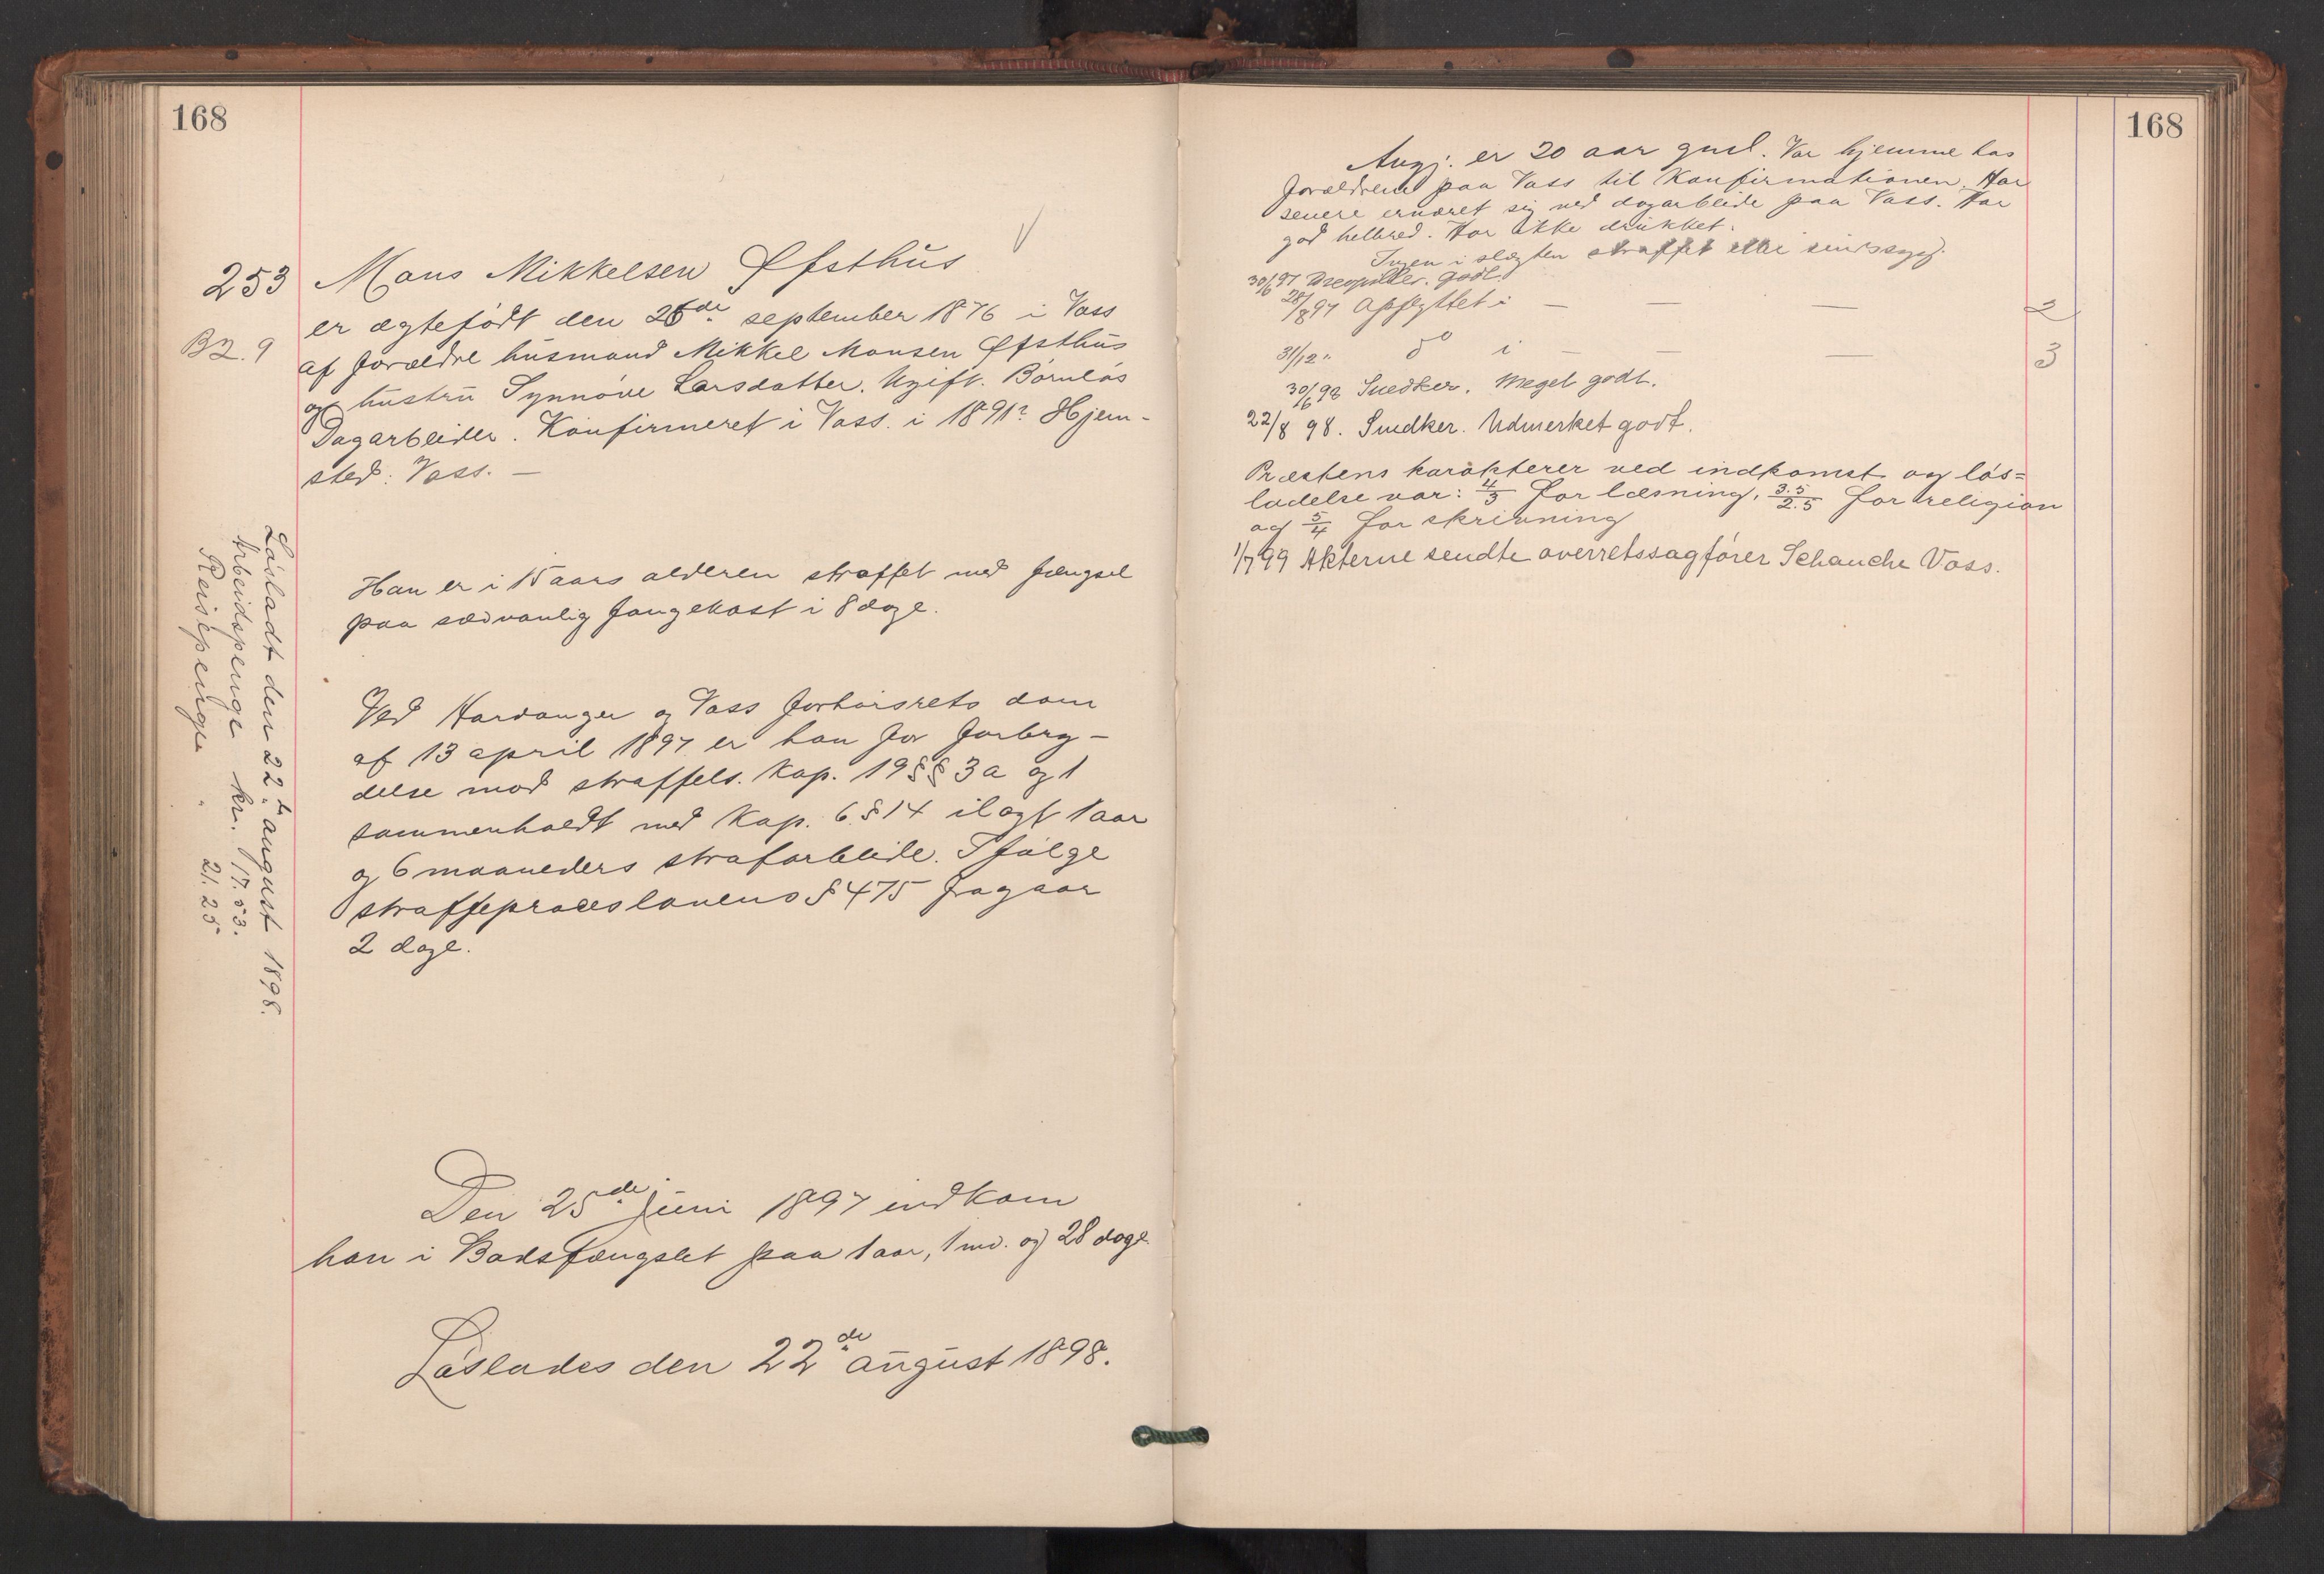 168
253 Mons Mikkelsen Øfsthus
er ægtefødt den 26de september 1876 i Voss
B2.9
af forældre husmand Mikkel Monsen Øfsthus
og hustru Synnøve Larsdatter. Ugift. Barnløs
Dagarbeider. Konfirmeret i Voss i 1891? Hjem-
sted: Voss. —
Han er i 15 aars alderen straffet med fængsel
paa sædvanlig fangekost i 8 dage.
Ved Hardanger og Voss forhørsrets dom
af 13 april 1897 er han for forbry-
delse mod straffels. Kap. 19 §§ 3a og 1
sammenholdt med Kap. 6 § 14 ilagt 1 aar
og 6 maaneders strafarbeide. Ifølge
straffeproceslovens § 475 fragaar
2 dage.
Den 25de juni 1897 indkom
han i Bodsfængslet paa 1 aar, 1 md. og 28 dage
Løslades den 22de august 1898.
Løsladt den 22de august 1898.
Arbeidspenge kr. 17.53.
Reisepenge " 21.25
168
Angj. er 20 aar gml. Var hjemme hos
forældrene paa Voss til Konfirmationen. Har
senere ernæret sig ved dagarbeide paa Voss. Har
god helbred. Har ikke drukket.
Ingen i slægten straffet eller sindssyg.
30/6 97 godt.
28/8 97 Opflyttet i — — — 2
31/12 " do i — — — 3
30/6 98 Snedker. Meget godt.
22/8 98. Snedker. Udmerket godt.
Præstens karakterer ved indkomst og løs=
ladelse var: 4/3 for læsning, 3.5/2.5 for religion
og 5/4 for skrivning
1/7 99 Akterne sendte overretssagfører Schanche Voss.